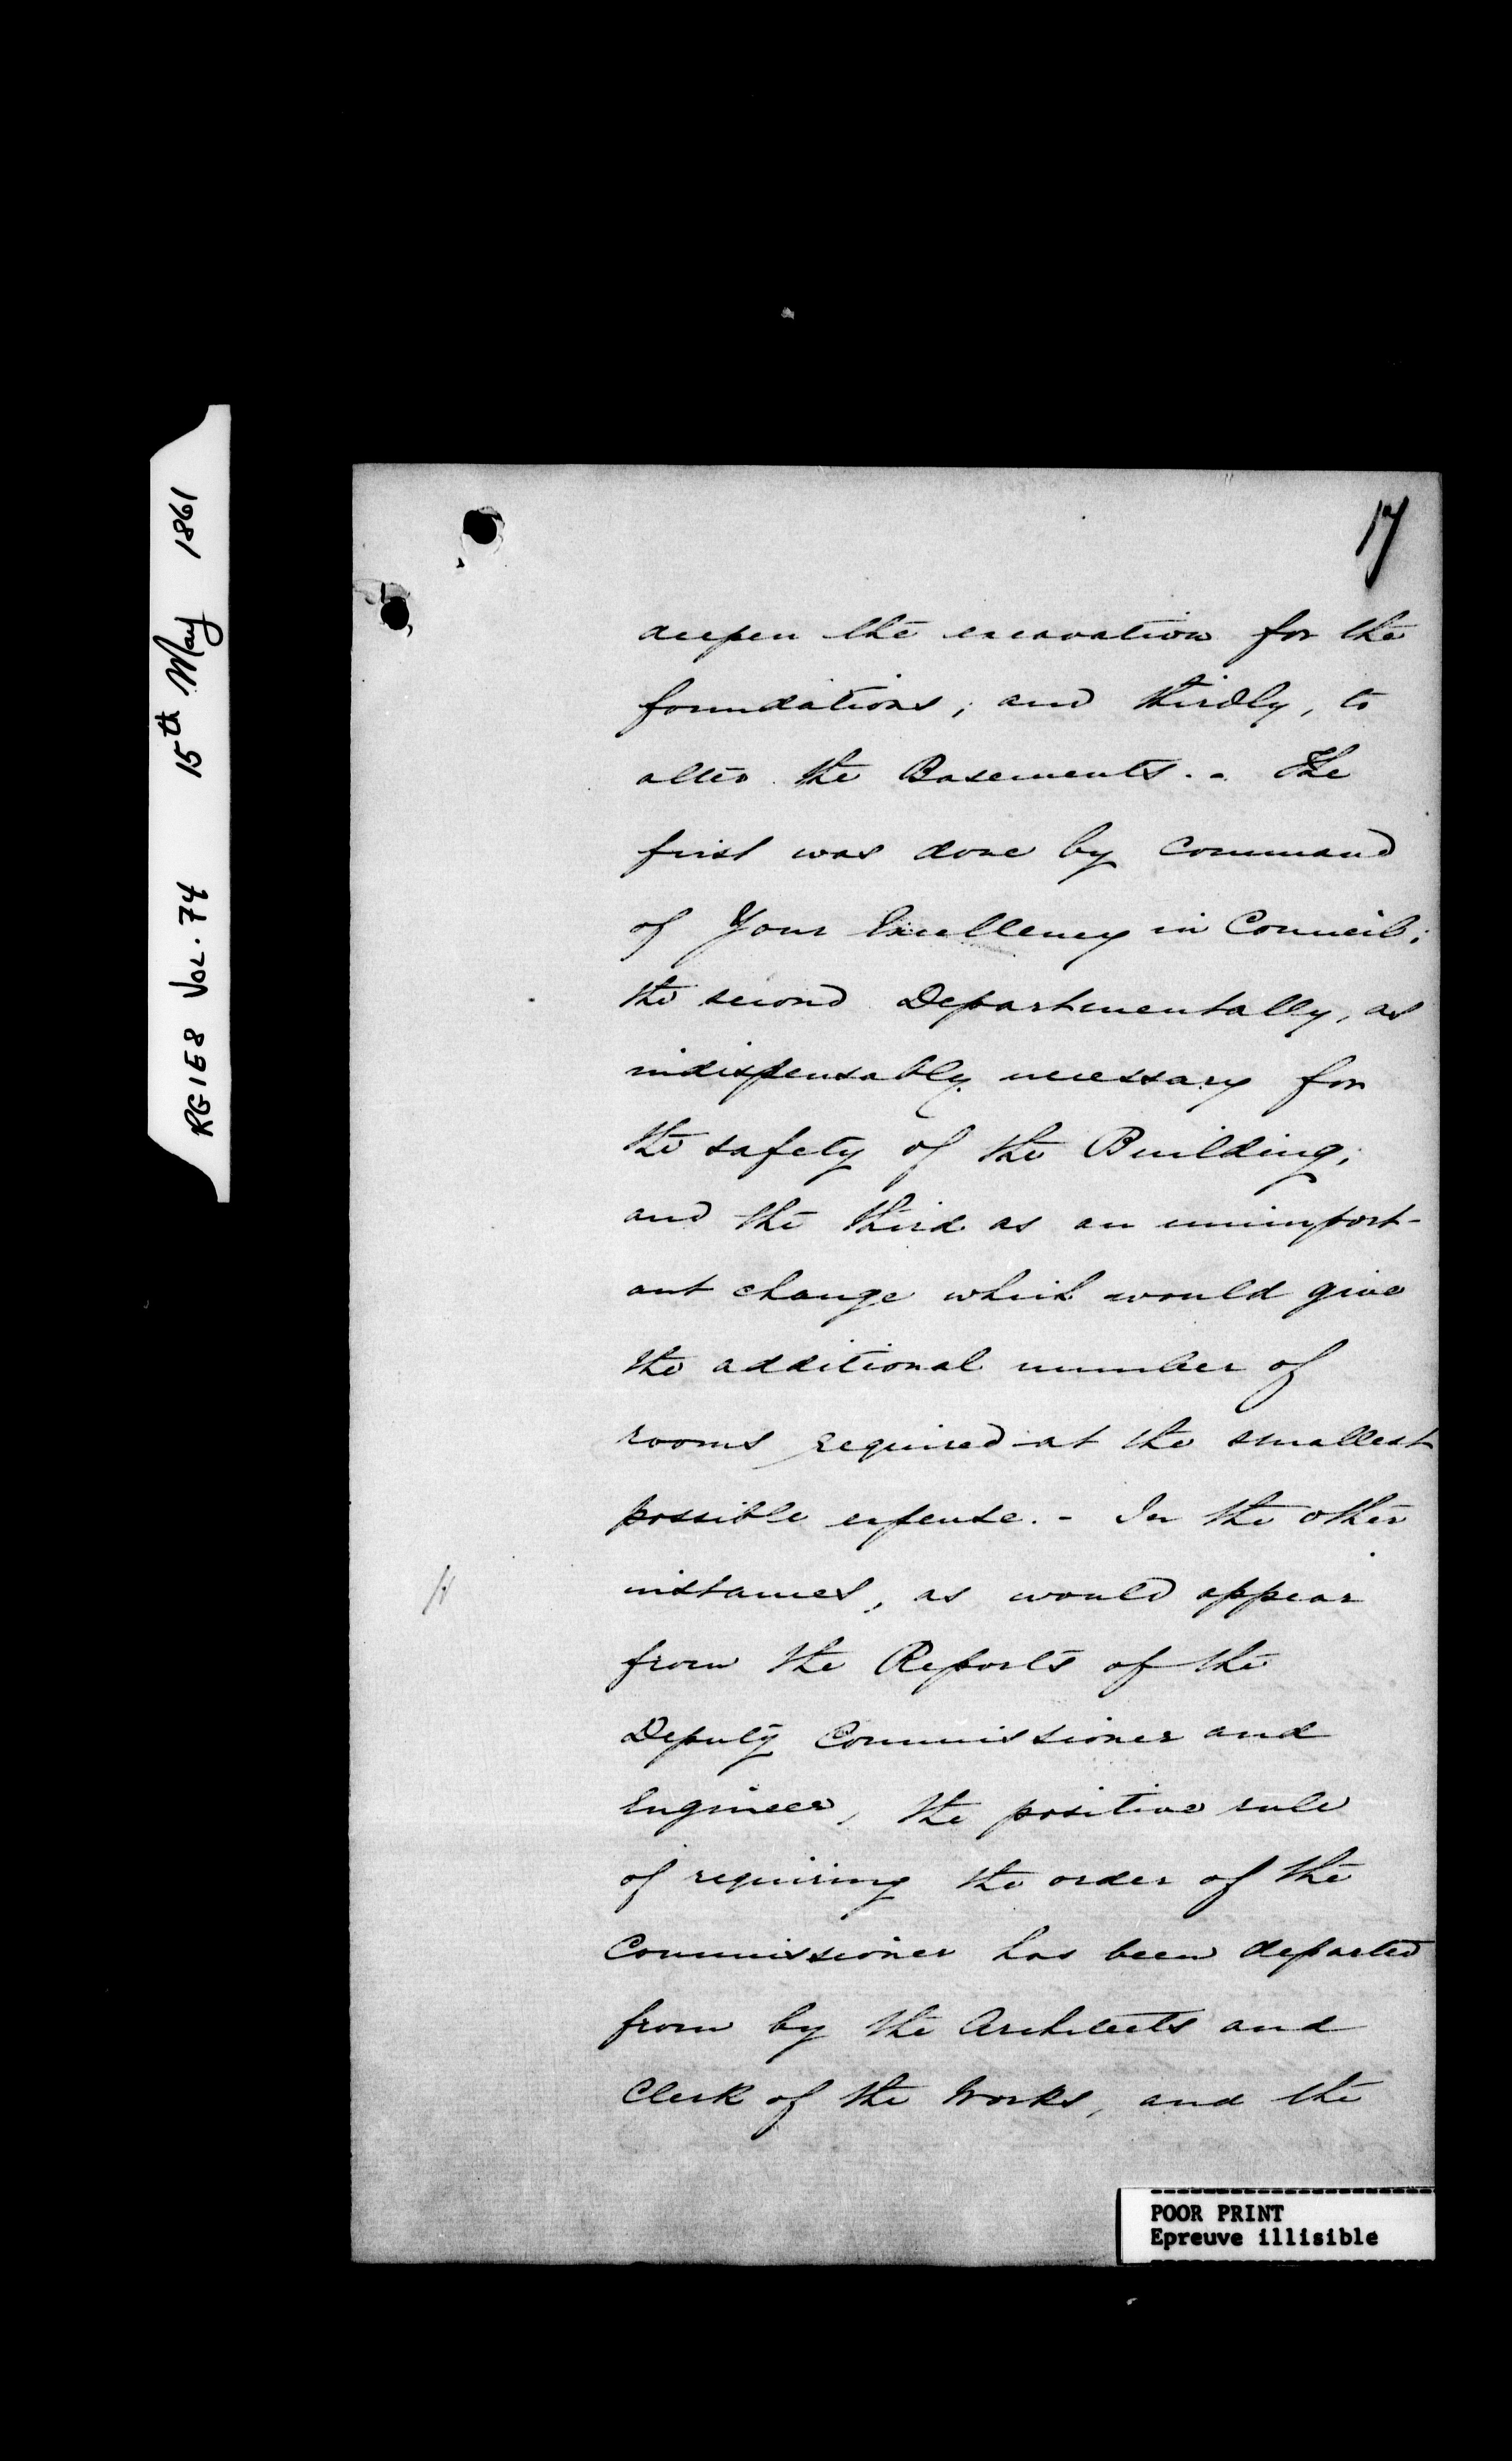 RG1E8 VOL. 74 15th May 1861
17
deepen the excavation for the
foundations; and thirdly, to
alter the Basements. - The
first was done by command
of Your Excellency in Council;
the second Departmentally, as
indispensably necessary for
the safety of the Building;
and the third as an unimport-
ant change which would give
the additional number of
rooms required at the smallest
possible expense. - In the other
instances, as would appear
from the Reports of the
Deputy Commissioner and
Engineer, the positive rule
of requiring the order of the
Commissioner has been departed
from by the Architects and
Clerk of the Works, and the
POOR PRINT
Epreuve illisible